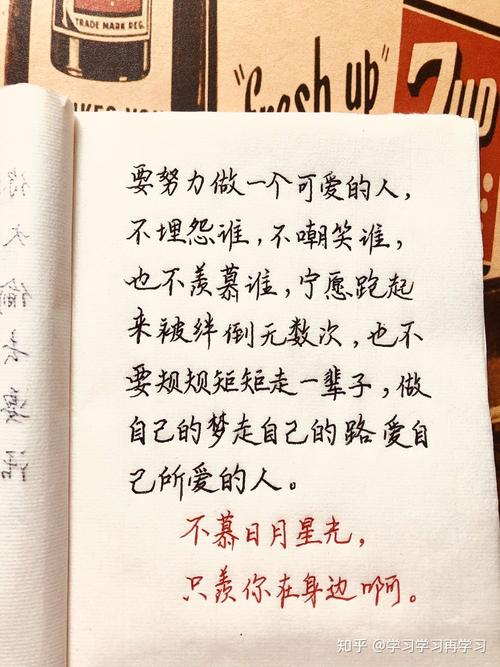 TRADE MARK REG.
"fresh up"
7up
要努力做一个可爱的人，
不埋怨谁，不嘲笑谁，
也不羡慕谁，宁愿跑起
来被绊倒无数次，也不
要规规矩矩走一辈子，做
自己的梦走自己的路爱自
己所爱的人。
不慕日月星光，
只羡你在身边啊。
知乎 @学习学习再学习